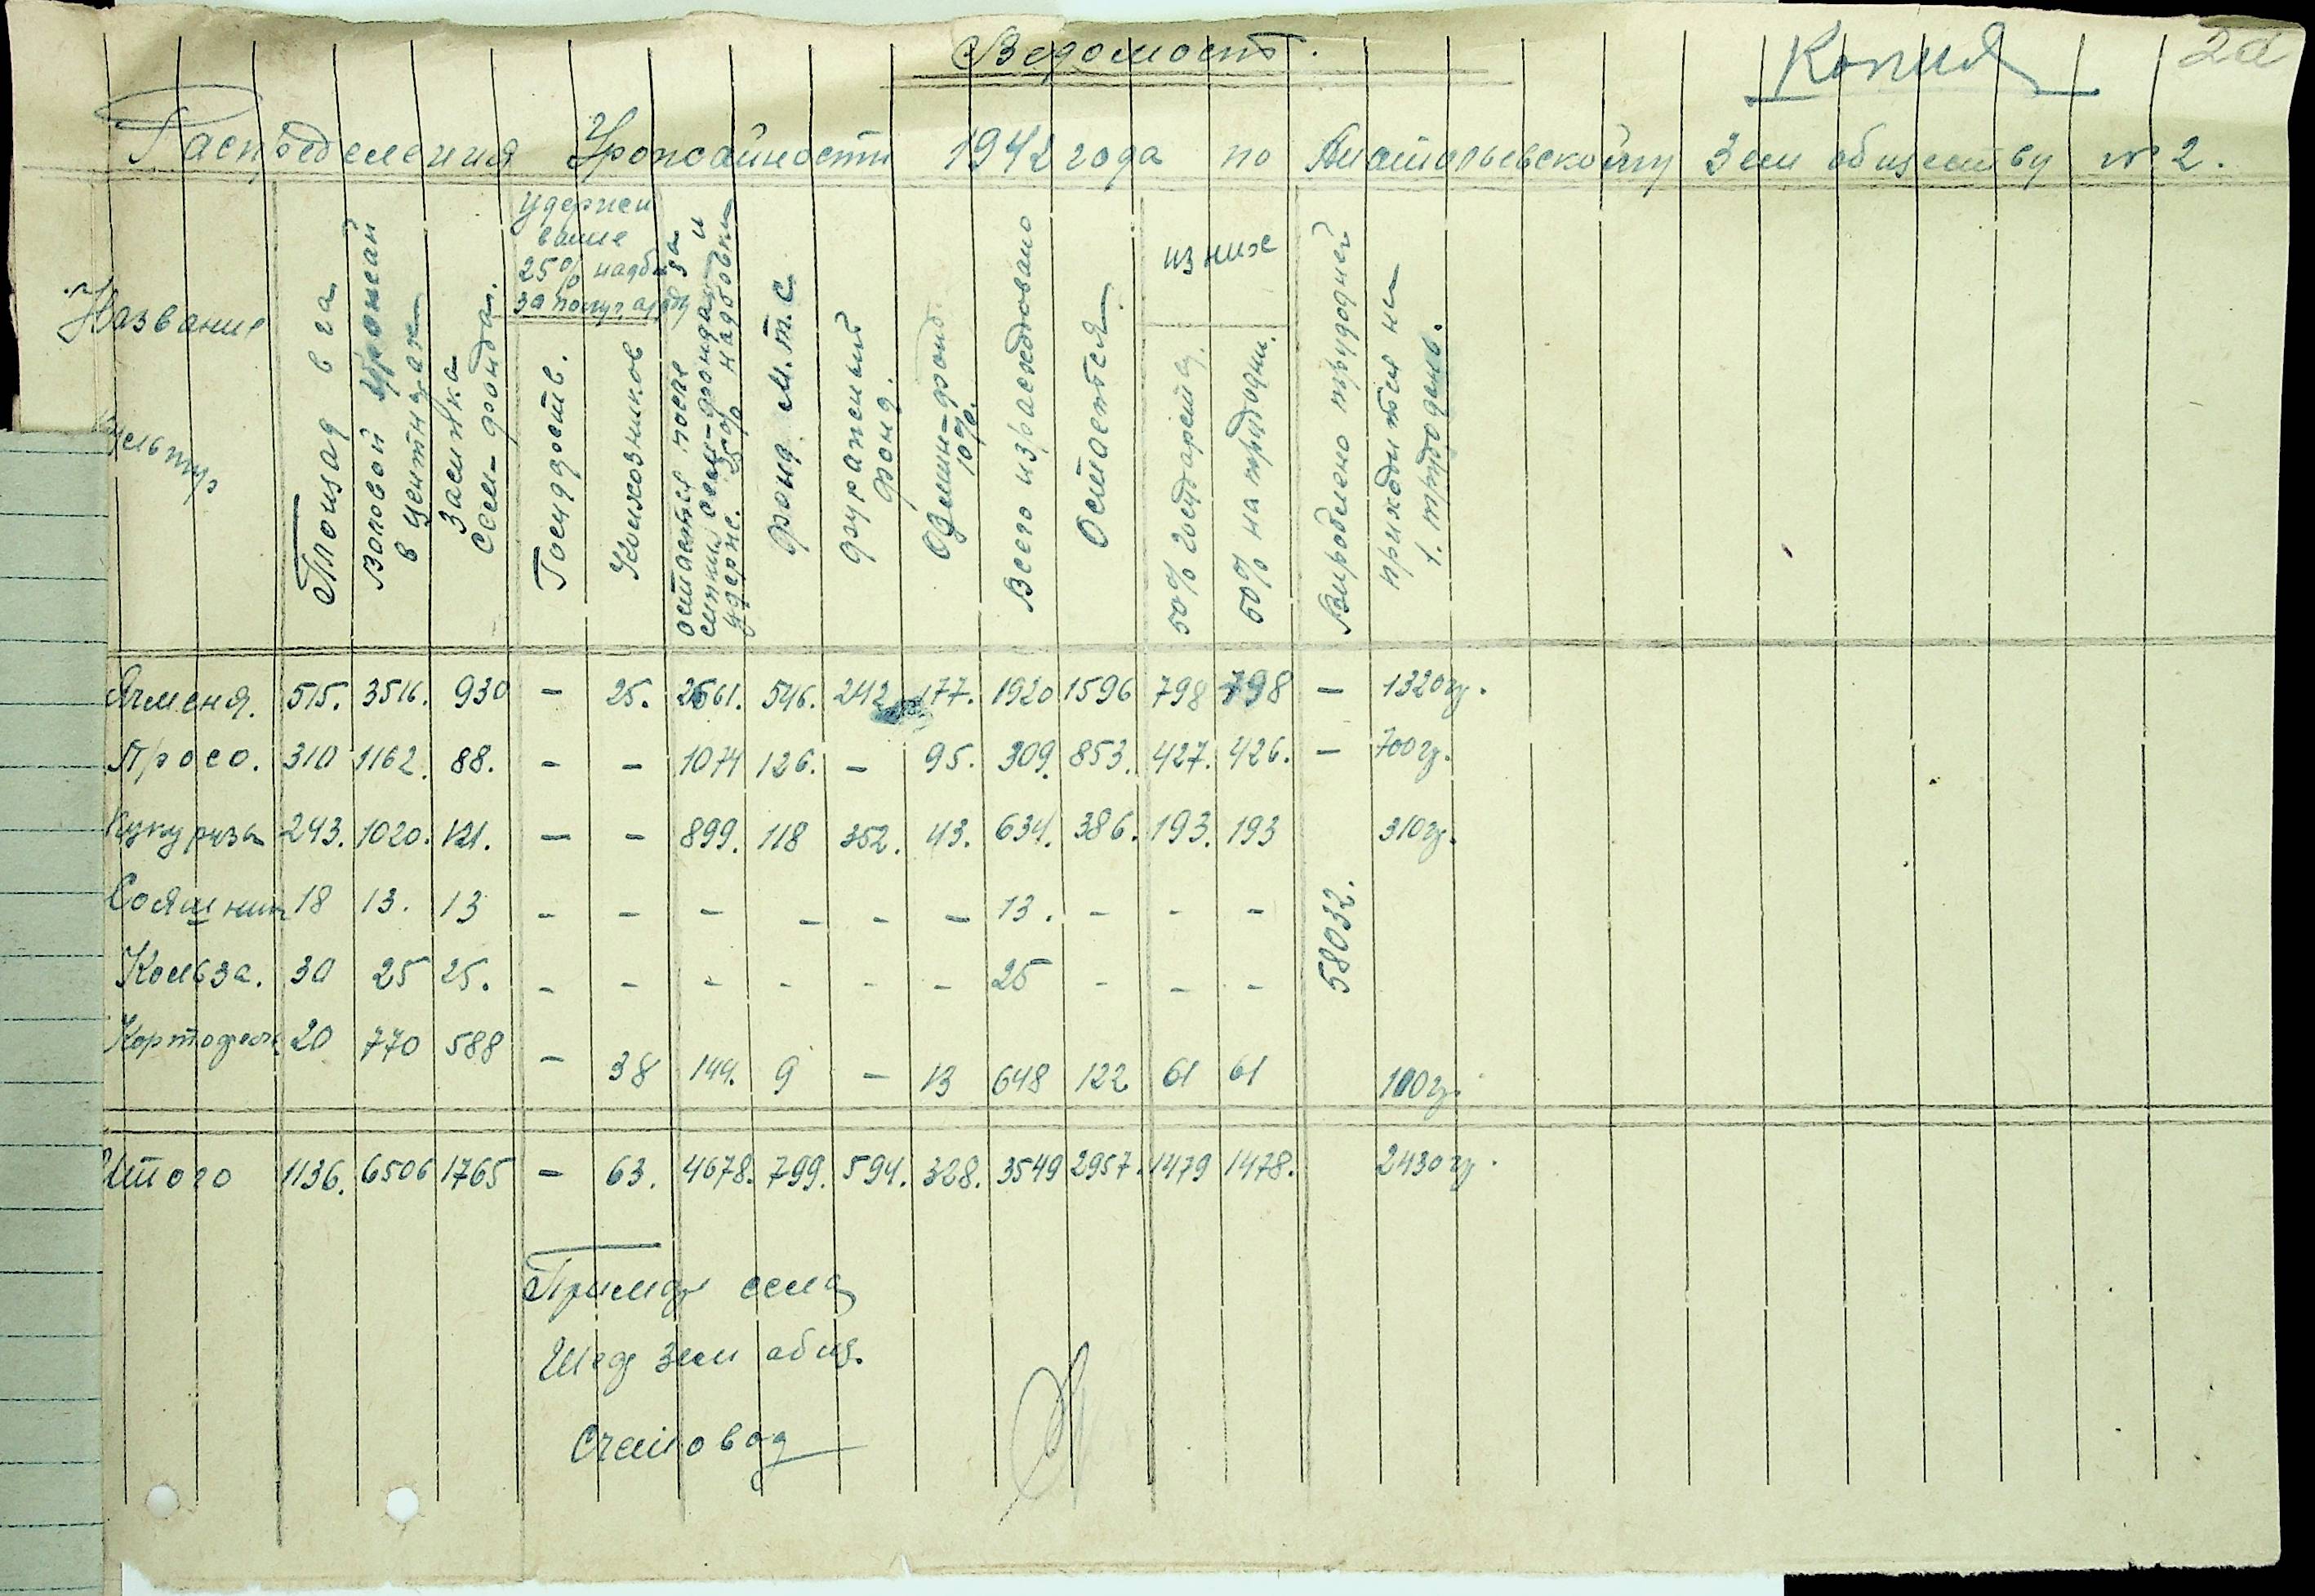 Ведомость.
Копия
2а
Распределения Урожайности 1942 года по Анатольевскому Зем обществу № 2.
Название культур
Площад в га
Воловой урожай в центнерах
Засипка сем-фонда.
удержен вание 25% надбав за получ ссуду
Госуддоств.
Колхозников
остается после за сипки сем-фонда и удерж. 25% надбовки
Фонд М.Т.С.
Фуражный фонд.
Одмин-фонд. 10%.
Всего израсходовано
Остается.
из них
50% государству.
50% на трудодни.
Выроблено трудодней
приходится на 1. трудодень.
Ячменя. 515. 3516. 930 - 25. 2561. 546. 242 177. 1920 1596 798 798 - 1320гр.
Просо. 310 1162. 88. - - 1074 126. - 95. 309. 853. 427. 426. - 700гр.
Кукурузы 243. 1020. 121. - - 899. 118 352. 43. 634. 386. 193. 193 310гр.
Сояшник 18 13. 13 - - - - - - 13. - - -
Кольза. 30 25 25. - - - - - - 25 - - -
58032.
Кортофель 20 770 588 - 38 144. 9 - 13 648 122 61 61 100гр.
Итого 1136. 6506 1765 - 63. 4678. 799. 594. 328. 3549 2957. 1479 1478. 2430гр.
Примар села
Шеф Зем общ.
Счетовод